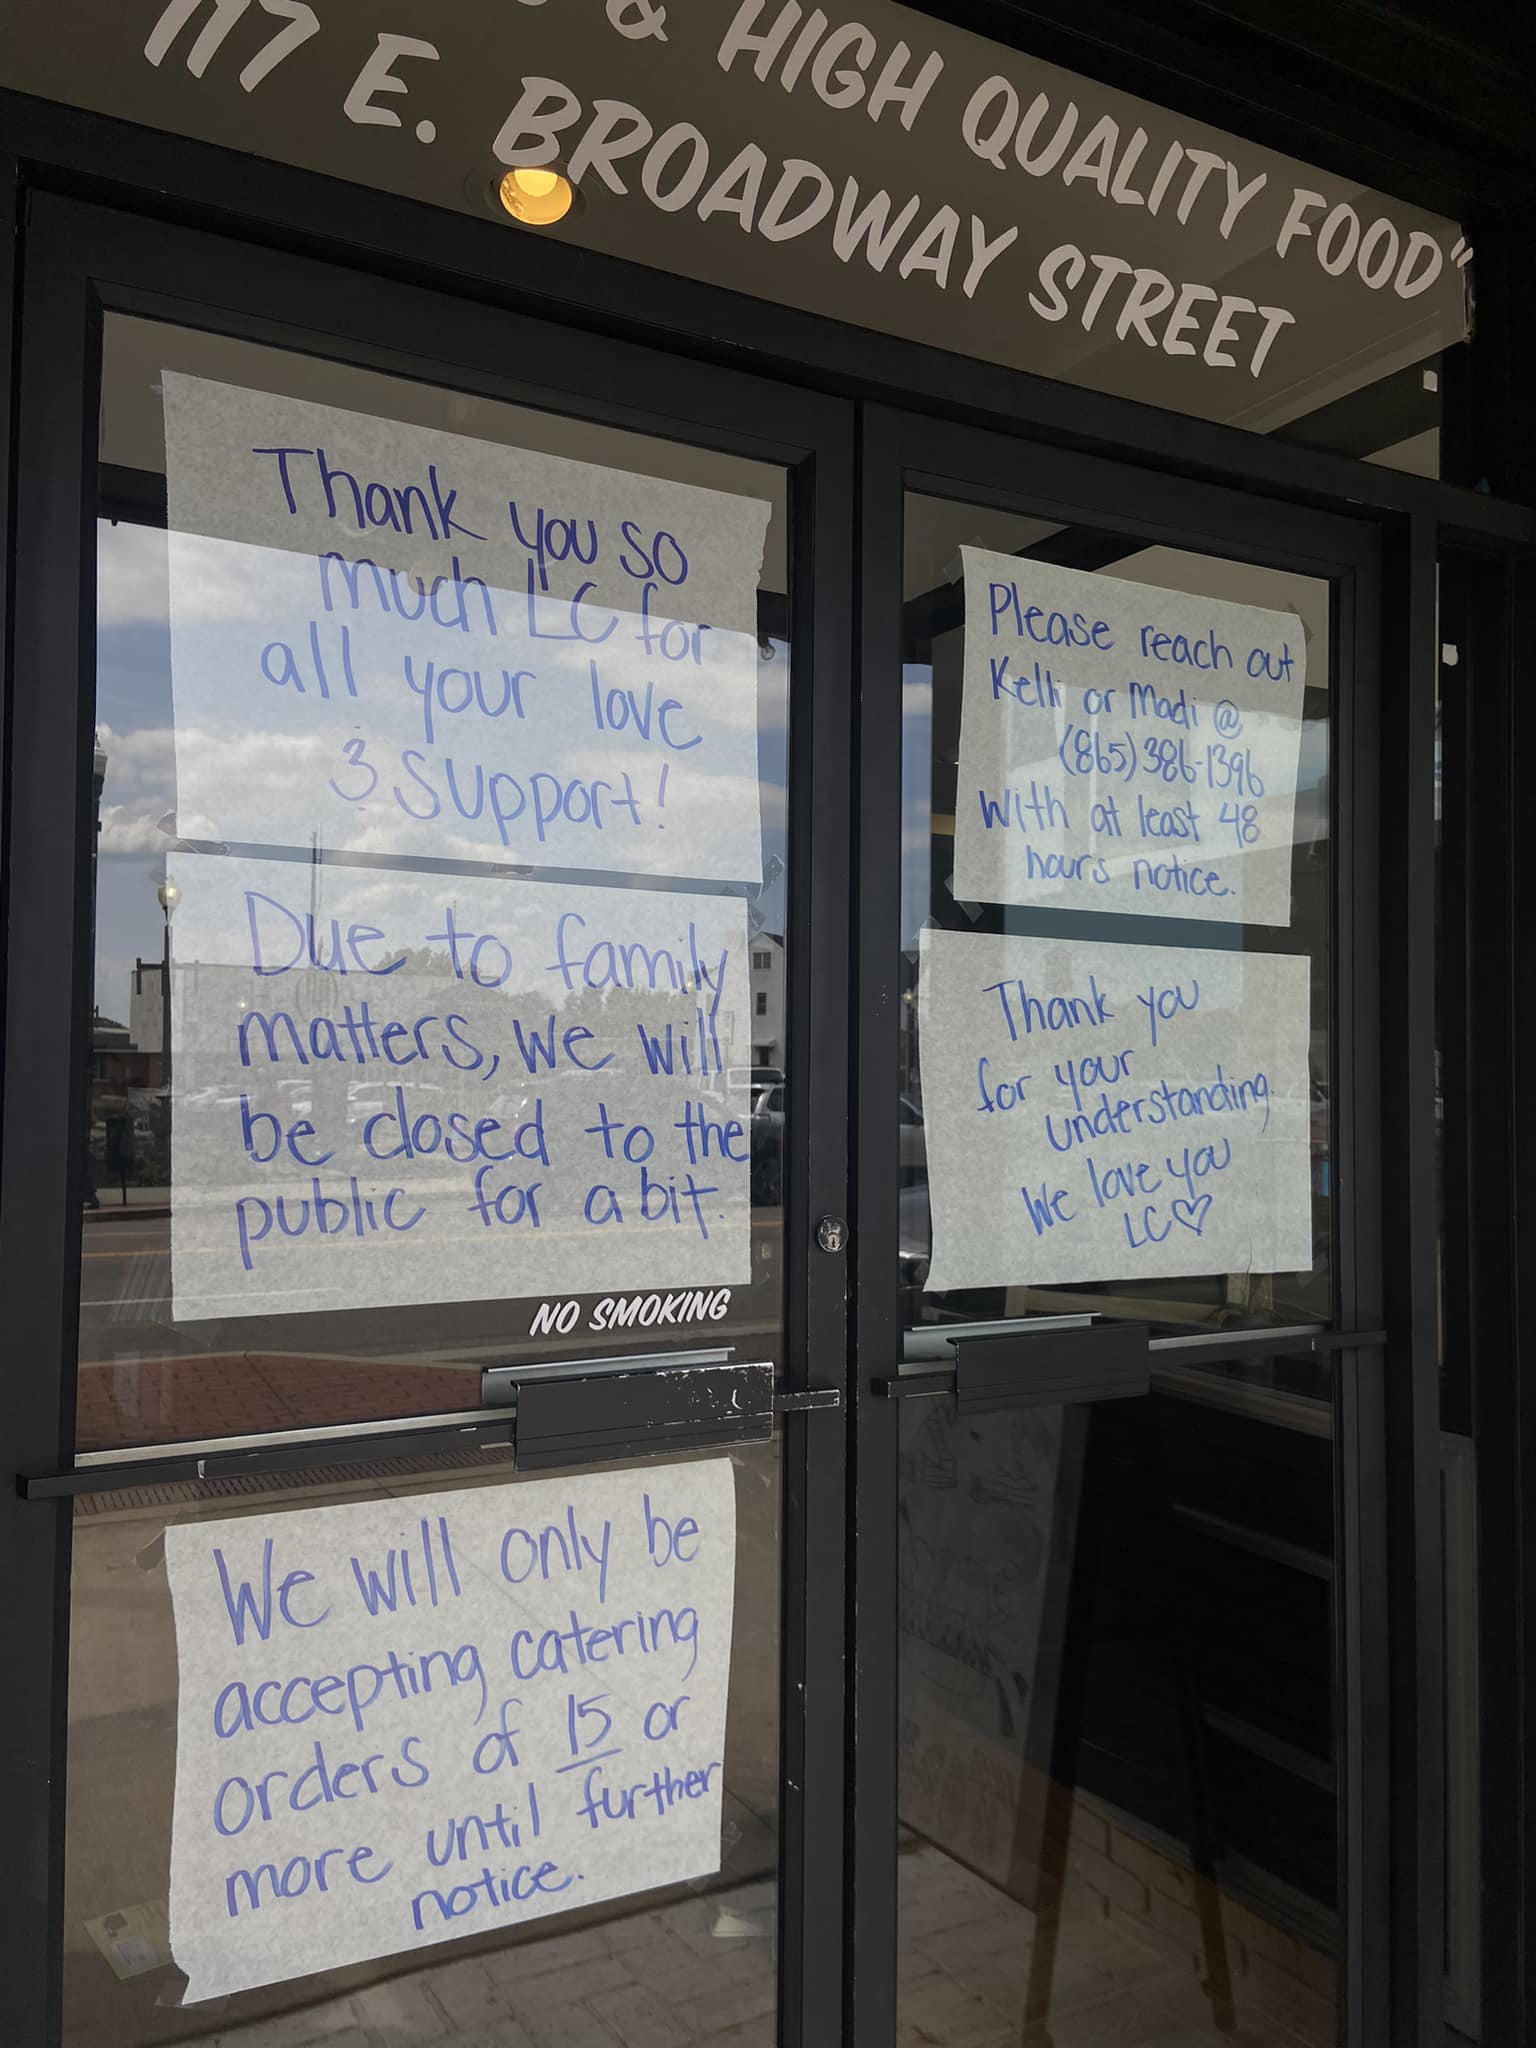 & HIGH QUALITY FOOD"
117 E. BROADWAY STREET
Thank you so
much LC for
all your love
& Support!
Due to family
matters, we will
be closed to the
public for a bit.
NO SMOKING
We will only be
accepting catering
orders of 15 or
more until further
notice.
Please reach out
Kelli or Madi @
(865) 386-1396
with at least 48
hours notice.
Thank you
for your
understanding.
We love you
LC♡